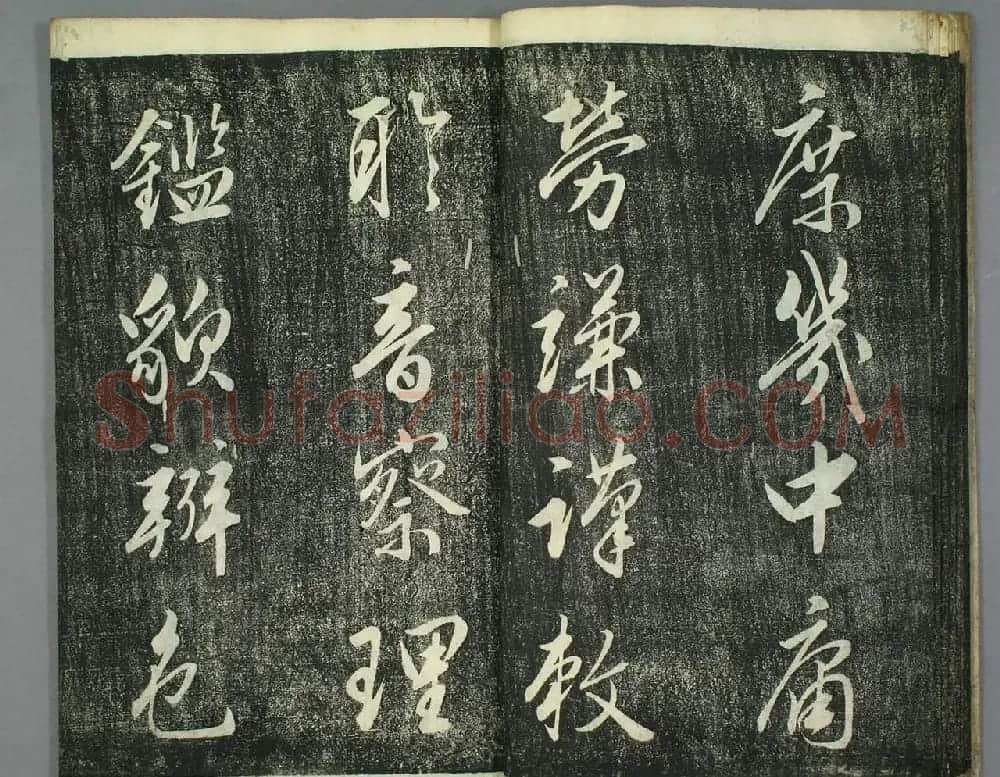 庶幾中庸
勞謙謹敕
聆音察理
鑑貌辨色
Shufaziliao.COM